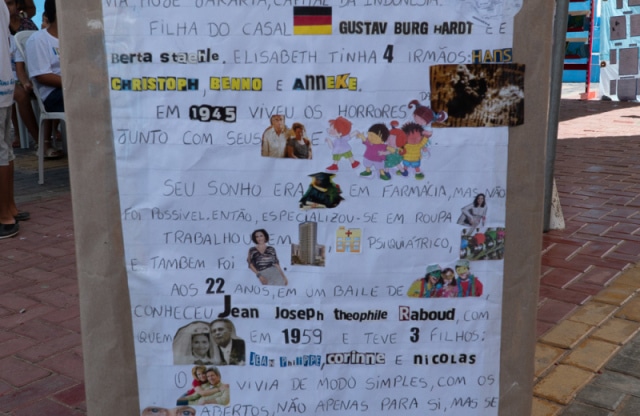 VIA, HOJE JAKARTA, CAPITAL DA INDONÉSIA.
FILHA DO CASAL GUSTAV BURG HARDT E E
Berta staehle. ELISABETH TINHA 4 IRMÃOS: HANS
CHRISTOPH, BENNO E ANNEKE.
EM 1945 VIVEU OS HORRORES DA
JUNTO COM SEUS E
SEU SONHO ERA EM FARMÁCIA, MAS NÃO
FOI POSSÍVEL. ENTÃO, ESPECIALIZOU-SE EM ROUPA
TRABALHOU EM , PSIQUIÁTRICO,
E TAMBÉM FOI
AOS 22 ANOS, EM UM BAILE DE ,
CONHECEU Jean Joseph theophile Raboud, COM
QUEM EM 1959 E TEVE 3 FILHOS:
JEAN PHILIPPE, corinne e nicolas
O VIVIA DE MODO SIMPLES, COM OS
ABERTOS, NÃO APENAS PARA SI, MAS SE